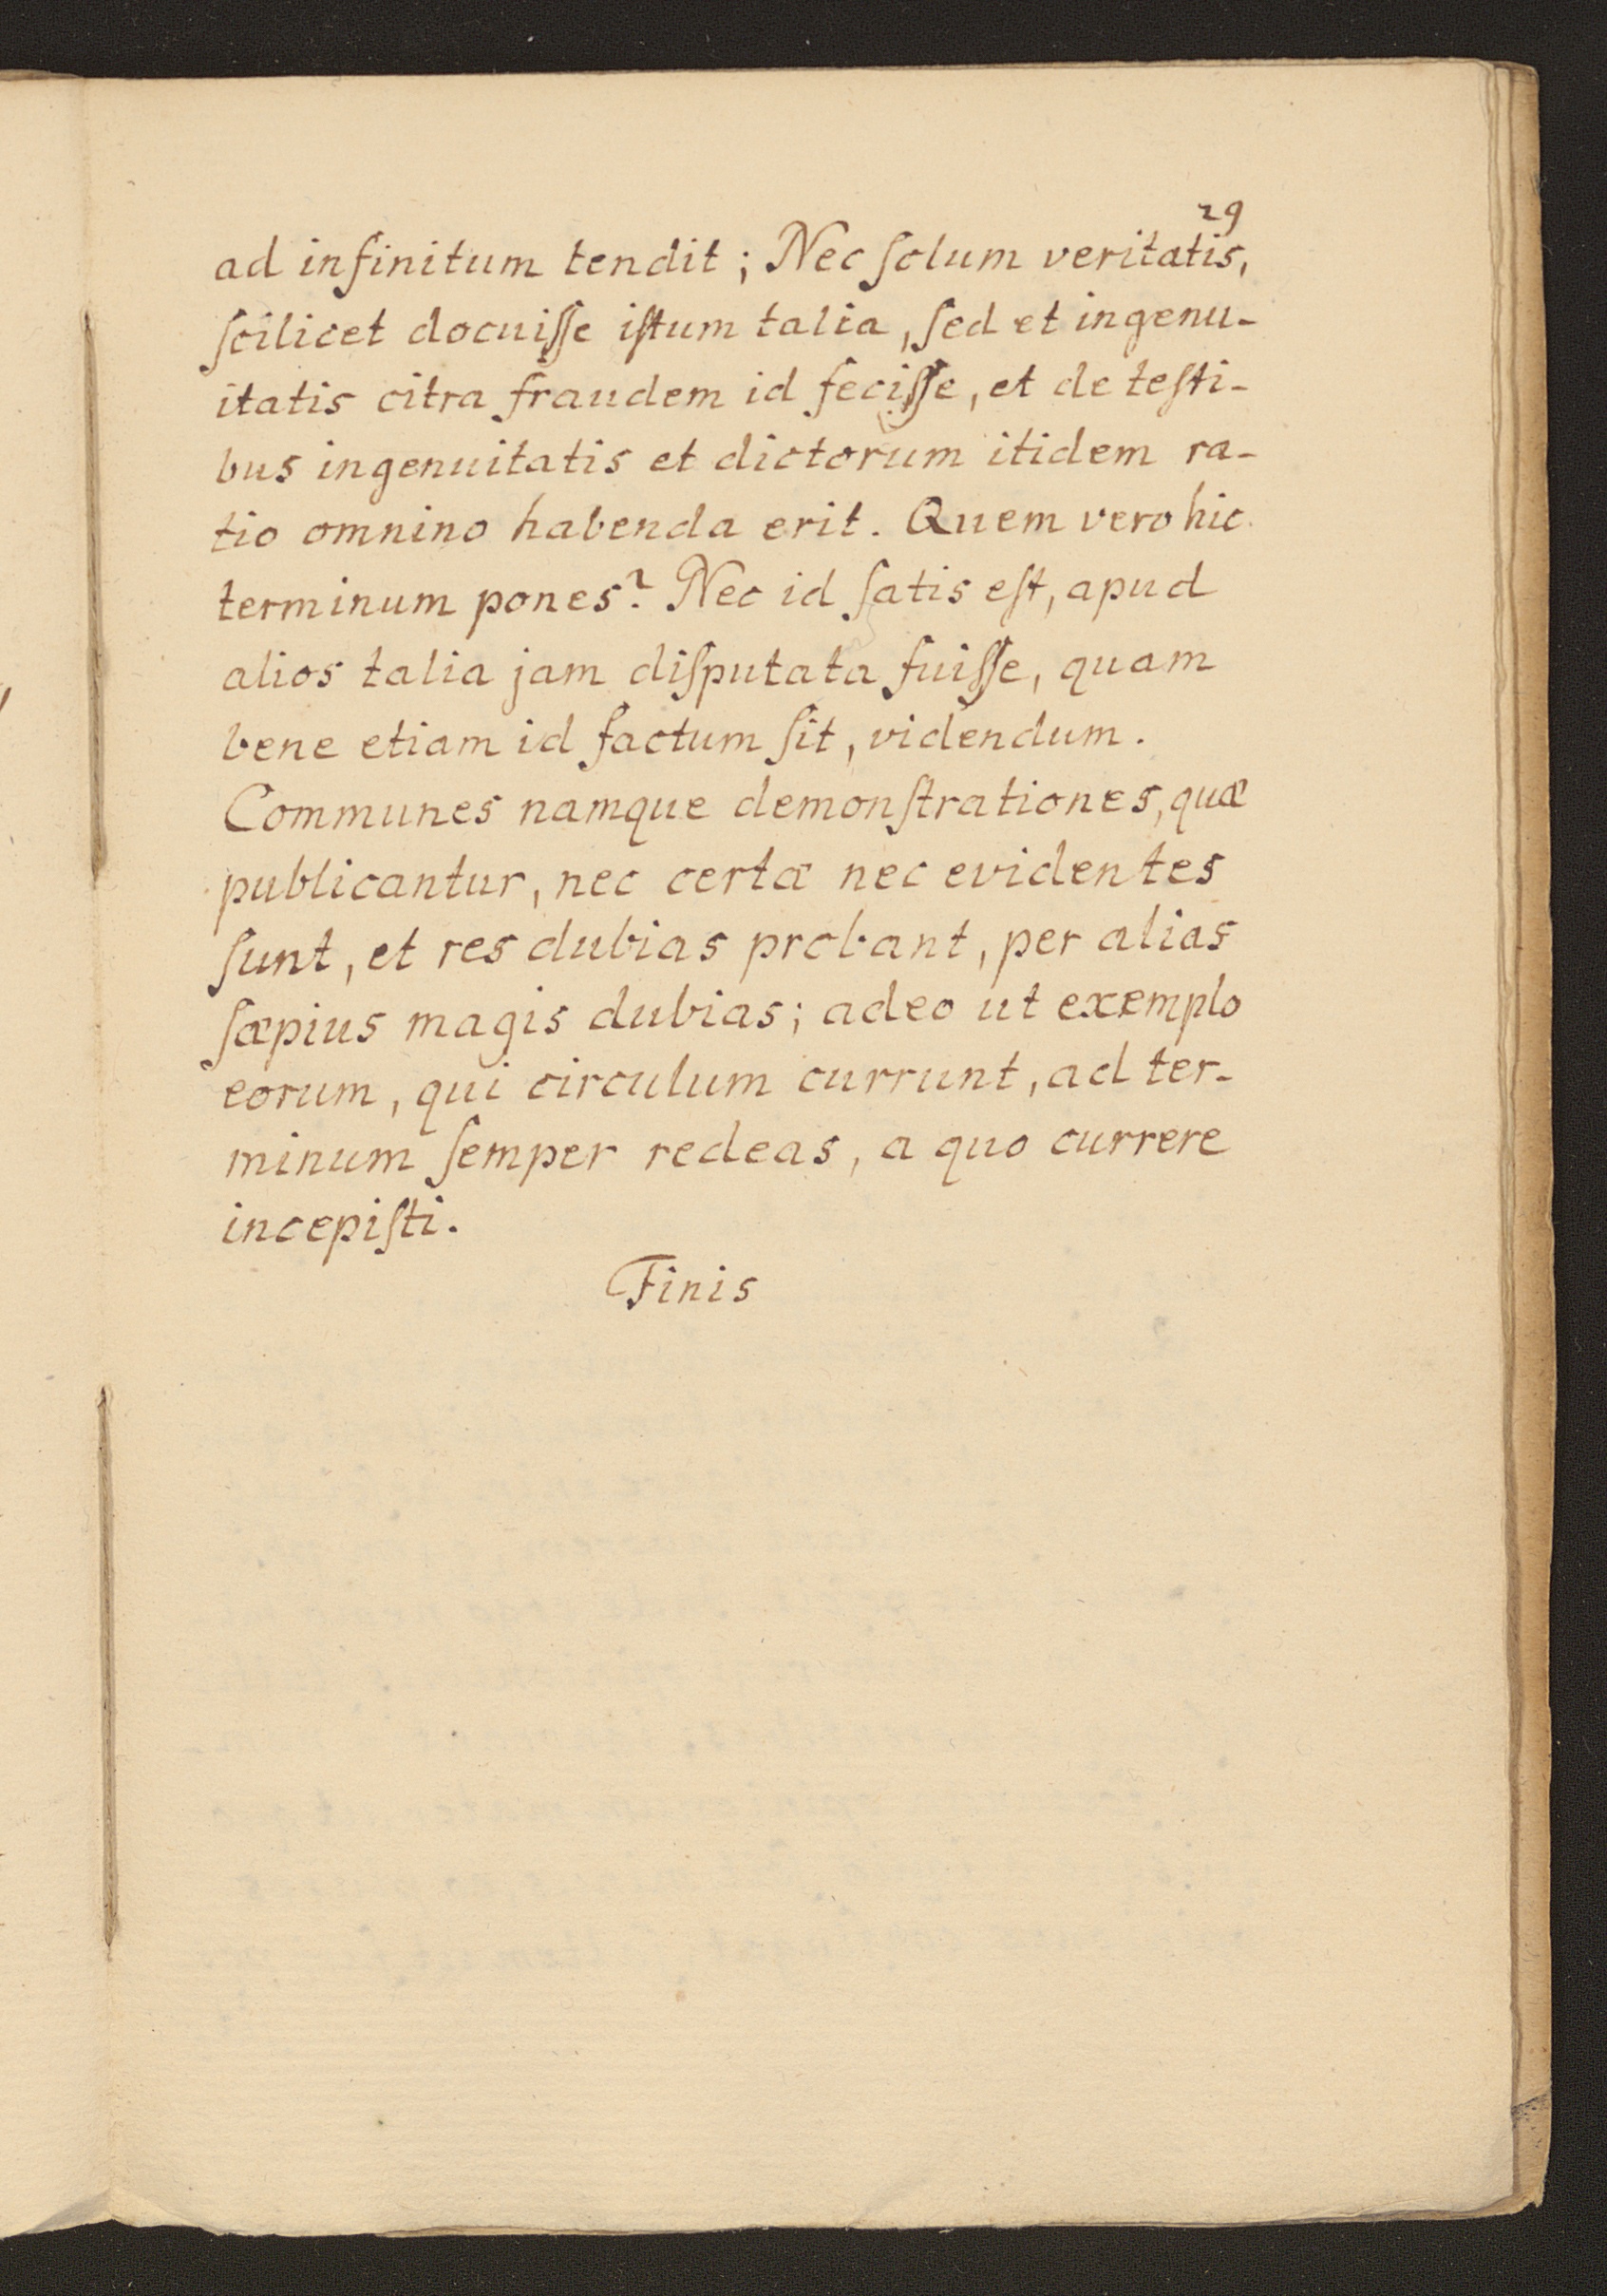 29
ad infinitum tendit; Nec ſolum veritatis,
ſcilicet docuiſſe iſtum talia, ſed et ingenu-
itatis citra fraudem id feciſſe, et de teſti-
bus ingenuitatis et dictorum itidem ra-
tio omnino habenda erit. Quem vero hic
terminum pones? Nec id ſatis eſt, apud
alios talia jam diſputata fuiſſe, quam
bene etiam id factum ſit, videndum.
Communes namque demonſtrationes, quæ
publicantur, nec certæ nec evidentes
ſunt, et res dubias probant, per alias
ſæpius magis dubias; adeo ut exemplo
eorum, qui circulum currunt, ad ter-
minum ſemper redeas, a quo currere
incepiſti.
Finis